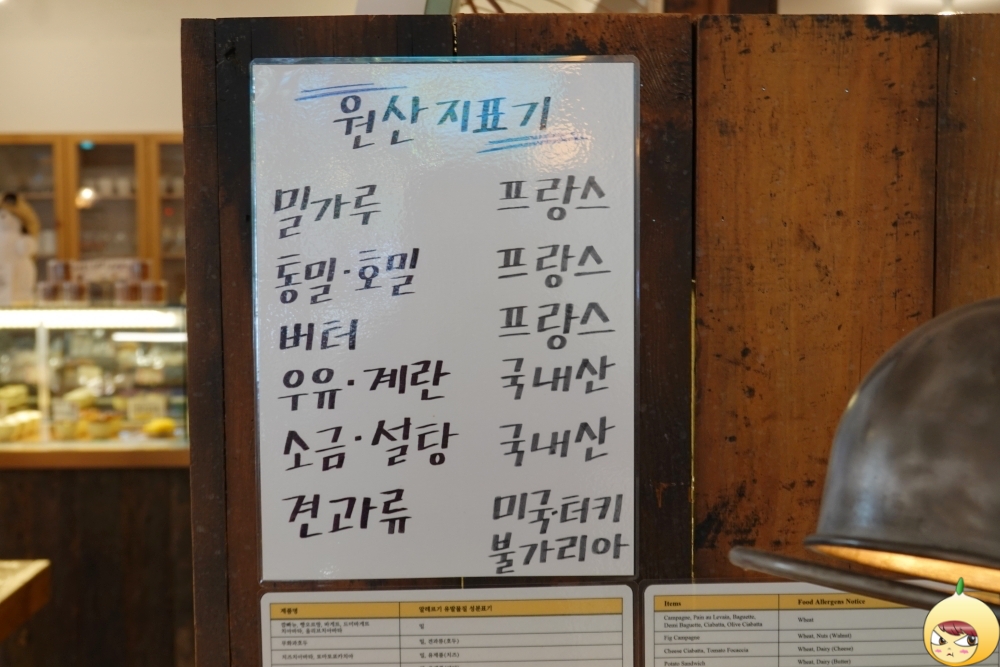 원산지표기
밀가루 프랑스
통밀·호밀 프랑스
버터 프랑스
우유·계란 국내산
소금·설탕 국내산
견과류 미국·터키
불가리아
제품명 알레르기 유발물질 성분표기
밀
무화과호두 밀, 견과류(호두)
Items Food Allergens Notice
Campagne, Pain au Levain, Baguette, Wheat
Demi Baguette, Ciabatta, Olive Ciabatta
Fig Campagne Wheat, Nuts (Walnut)
Cheese Ciabatta, Tomato Focaccia Wheat, Dairy (Cheese)
Potato Sandwich Wheat, Dairy (Butter)